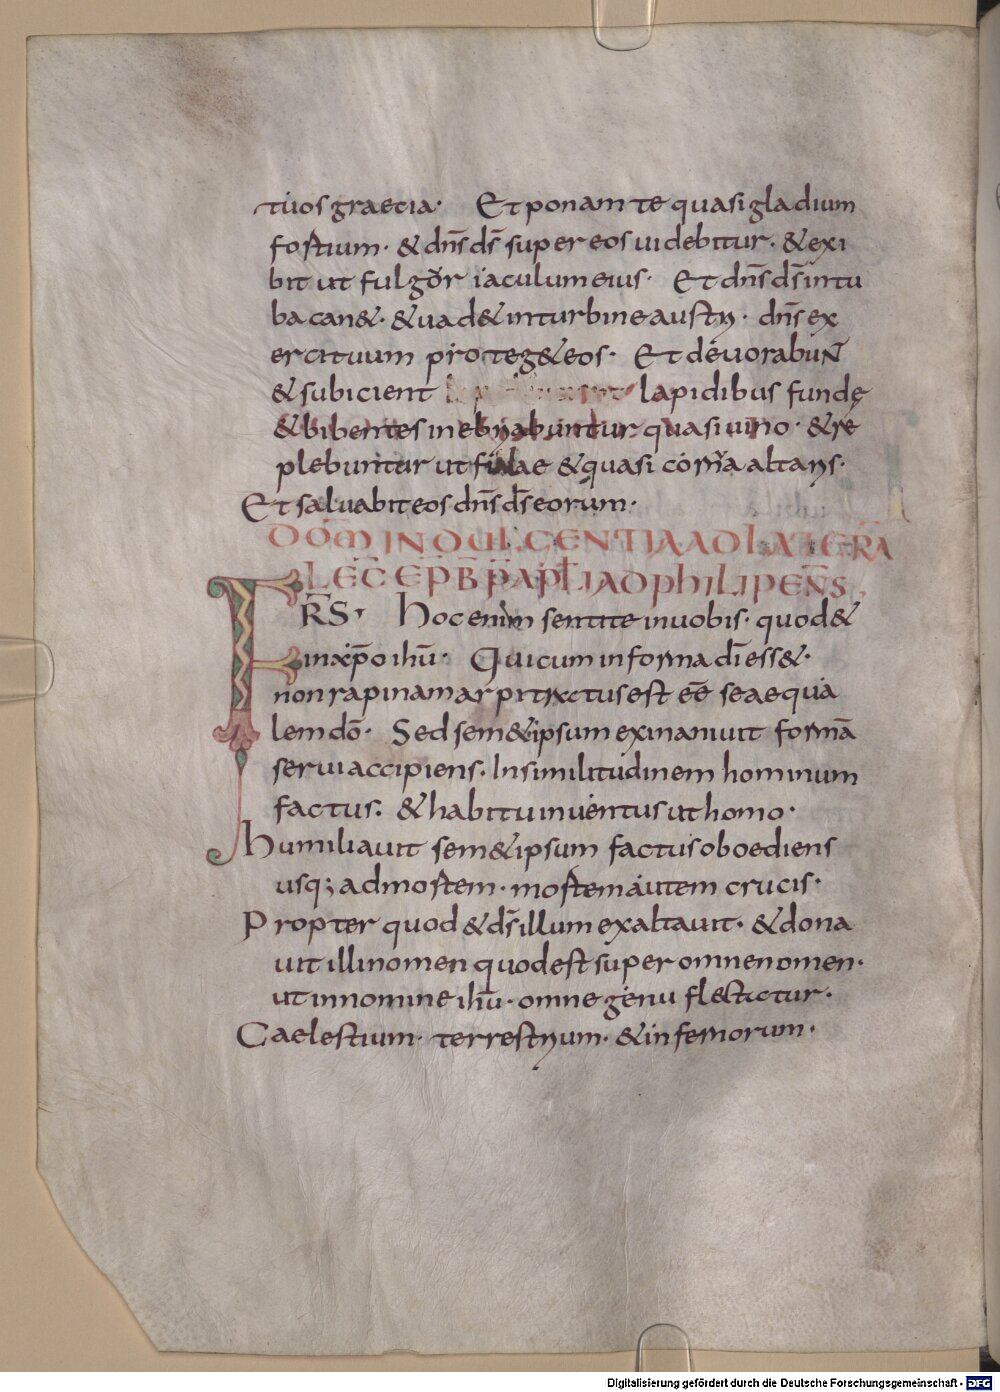 tuos graecia· Et ponam te quasi gladium
fortium· & dn̄s ds̄ super eos uidebitur· & exi
bit ut fulgor iaculum eius· Et dn̄s ds̄ in tu
ba can&· & uad& in turbine austri· dn̄s ex
ercituum proteg&eos· Et deuorabuNT
& subicient lapidibus fundę
& bibentes inebriabuntur quasi uino· & re
plebuntur ut fialae & quasi cornua altaris·
Et saluabit eos dn̄s ds̄ eorum·
DOM̄ INDULGENTIA AD LATERA
LEC̄ EP̄ B̄ PAP̄LI AD PHILIPENS̄
FRS̄, hoc enim sentite in uobis· quod &
in xp̄o ihū· Qui cum in forma dī ess&·
non rapinam arbitratus est eē se aequa
lem dō· Sed sem&ipsum exinaniuit formā
serui accipiens· In similitudinem hominum
factus· & habitu inuentus ut homo·
humiliauit sem&ipsum factus oboediens
usq; ad mortem· mortem autem crucis·
Propter quod & ds̄ illum exaltauit· & dona
uit illi nomen quod est super omne nomen·
ut in nomine ihū· omne genu flectatur·
Caelestium· terrestrium· & infernorum·
Digitalisierung gefördert durch die Deutsche Forschungsgemeinschaft - DFG